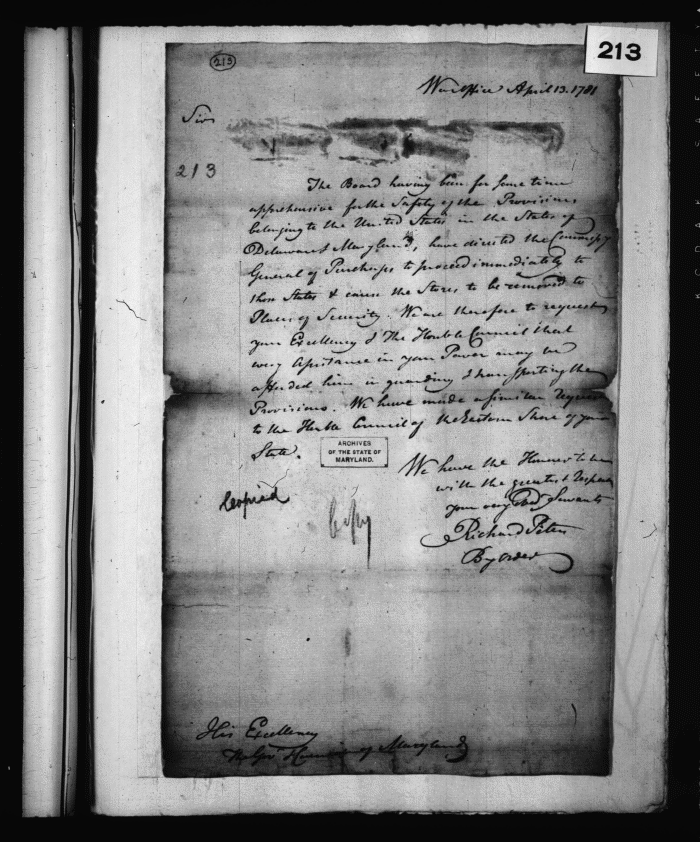 213
(213)
War Office April 13. 1781
Sir
213
The Board having been for some time
apprehensive for the Safety of the Provisions
belonging to the United States in the States of
Delaware & Maryland, have directed the Commissy
General of Purchases to proceed immediately to
those States & cause the Stores to be removed to
Places of Security. We are therefore to request
your Excellency & The Honble Council that
every Assistance in your Power may be
afforded him in guarding & transporting the
Provisions. We have made a similar Request
to the Honble Council of the Eastern Shore of your
State.
ARCHIVES
OF THE STATE OF
MARYLAND.
We have the Honour to be
with the greatest Respect
your very Obed Servants
Richard Peters
By order
Copied
Copy
His Excellency
The Govr of Maryland